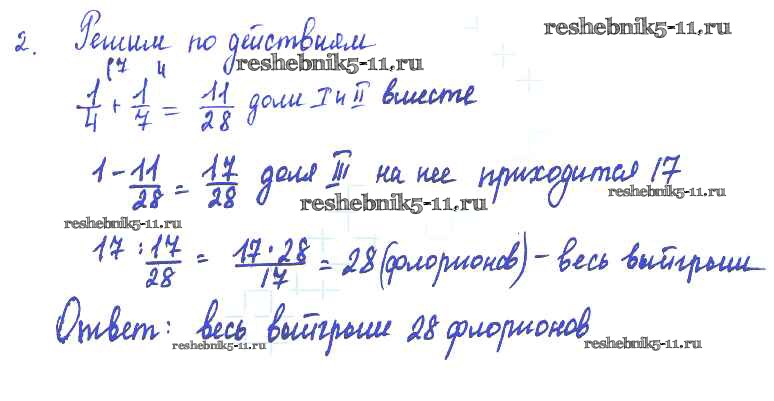 2. Решим по действиям reshebnik5-11.ru
reshebnik5-11.ru
(7 4
1/4 + 1/7 = 11/28 доли I и II вместе
1 - 11/28 = 17/28 доля III на нее приходится 17
reshebnik5-11.ru reshebnik5-11.ru
reshebnik5-11.ru
17 : 17/28 = 17·28/17 = 28 (флорионов) - весь выйгрыш
Ответ: весь выйгрыш 28 флорионов
reshebnik5-11.ru reshebnik5-11.ru